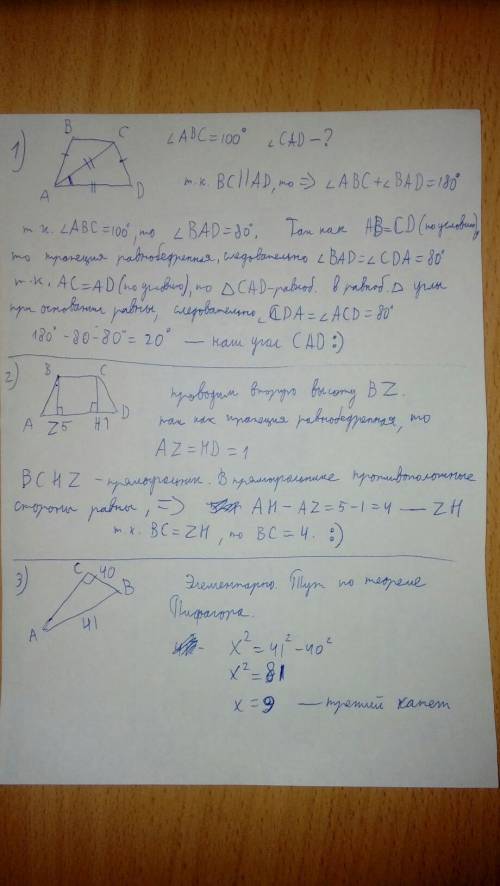 1) B C ∠ABC=100° ∠CAD-?
A D т.к. BC||AD, то => ∠ABC+∠BAD=180°
т.к. ∠ABC=100°, то ∠BAD=80°. Так как AB=CD (по условию),
то трапеция равнобедренная, следовательно ∠BAD=∠CDA=80°
т.к. AC=AD (по условию), то △CAD-равноб. В равноб. △ углы
при основании равны, следовательно ∠CDA=∠ACD=80°
180°-80-80°=20° — наш угол CAD :)
2) B C проводим вторую высоту BZ.
A Z 5 H 1 D так как трапеция равнобедренная, то
AZ=HD=1
BCHZ - прямоугольник. В прямоугольнике противоположные
стороны равны, => AH-AZ=5-1=4 — ZH
т.к. BC=ZH, то BC=4. :)
3) C 40 B Элементарно. Тут по теореме
A 41 Пифагора.
x²=41²-40²
x²=81
x=9 — третий катет